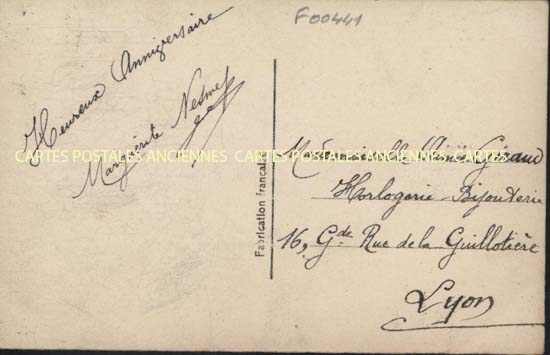 F00441
Heureux Anniversaire
Marguerite
CARTES POSTALES ANCIENNES CARTES POSTALES ANCIENNES CARTES POSTALES ANCIENNES
Fabrication française
Mademoiselle Giraud
Horlogerie-Bijouterie
16, Gde Rue de la Guillotière
Lyon